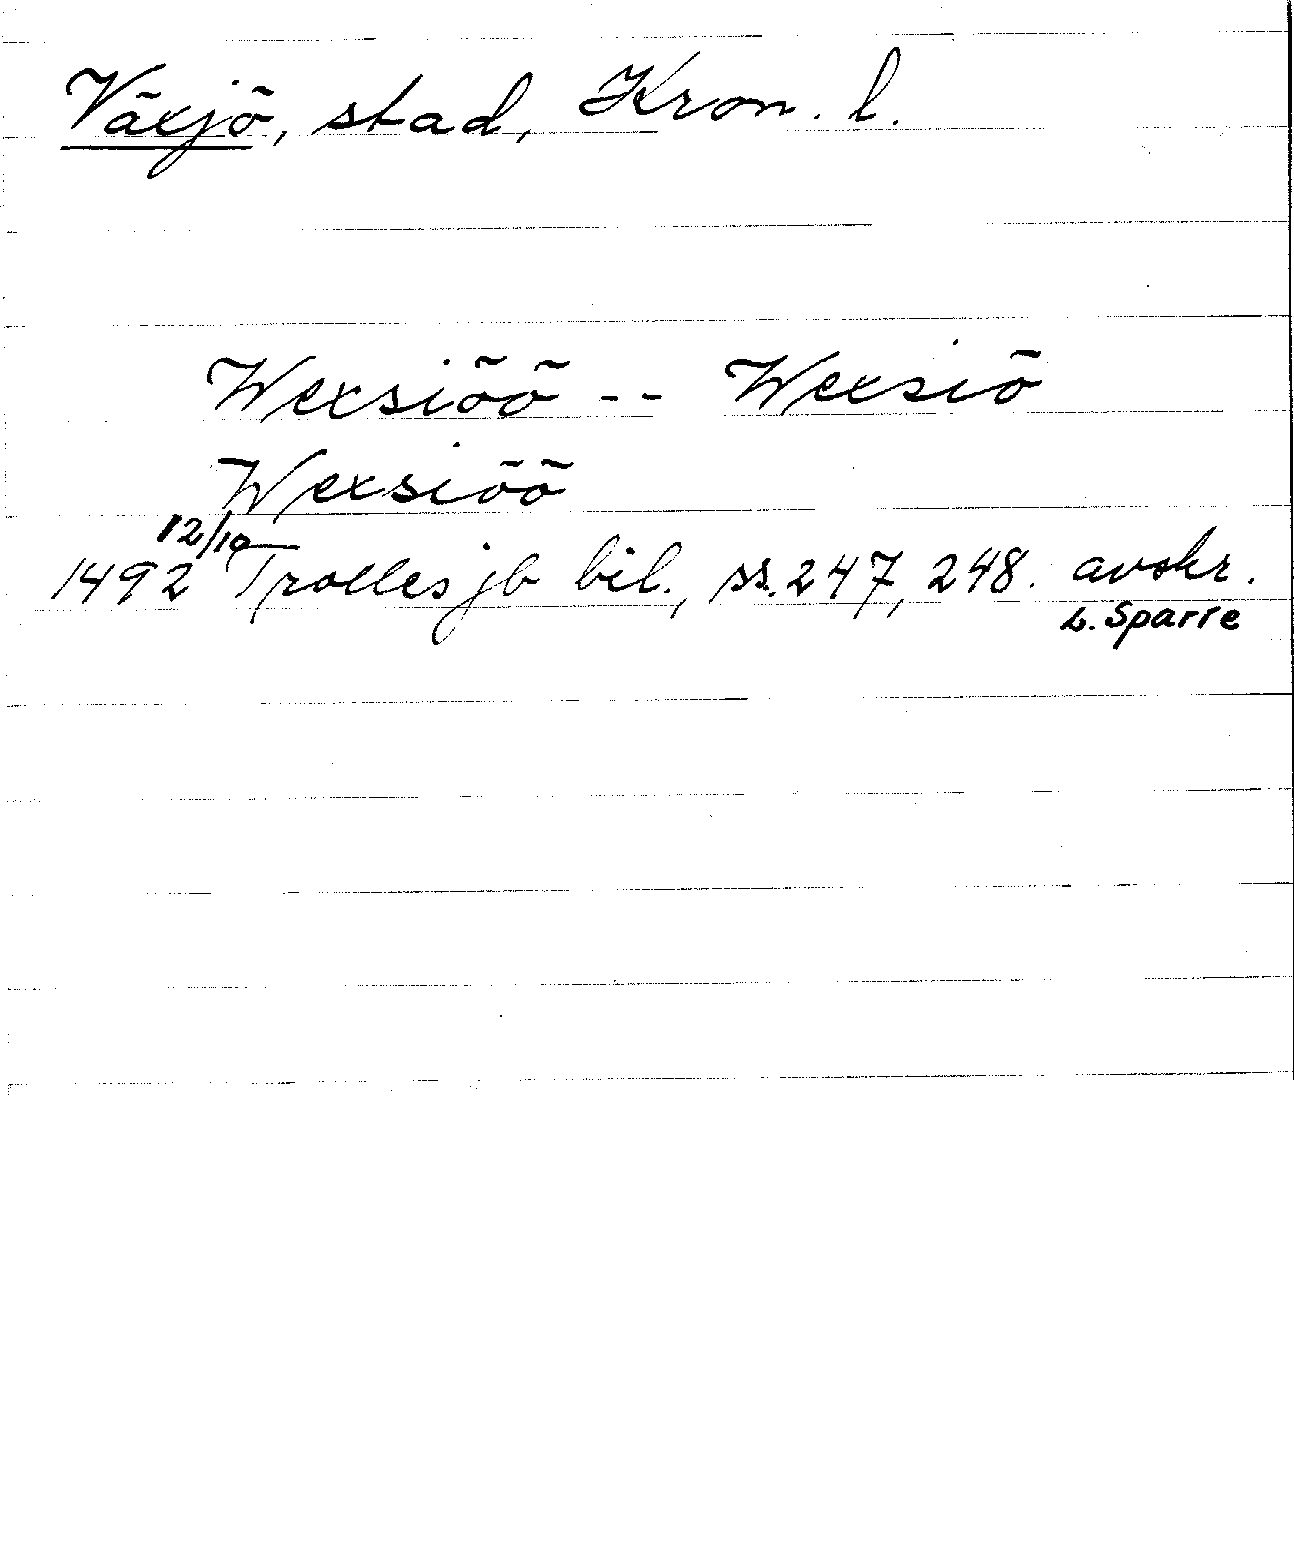 Växjö, stad, Kron. l.
Wexsiöö -- Wexsiö
Wexsiöö
1492 12/10 Trolles jb bil., ss. 247, 248. avskr.
L. Sparre